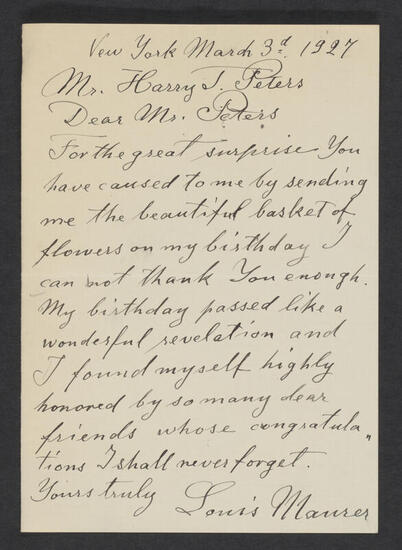 New York March 3d. 1927
Mr. Harry T. Peters
Dear Mr. Peters
For the great surprise You
have caused to me by sending
me the beautiful basket of
flowers on my birthday I
can not thank You enough.
My birthday passed like a
wonderful revelation and
I found myself highly
honored by so many dear
friends whose congratula„
tions I shall never forget.
Yours truly Louis Maurer